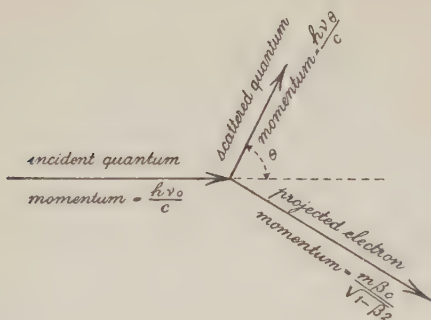 incident quantum
momentum = hν₀/c
scattered quantum
momentum = hνθ/c
θ
projected electron
momentum = mβc/√1-β²